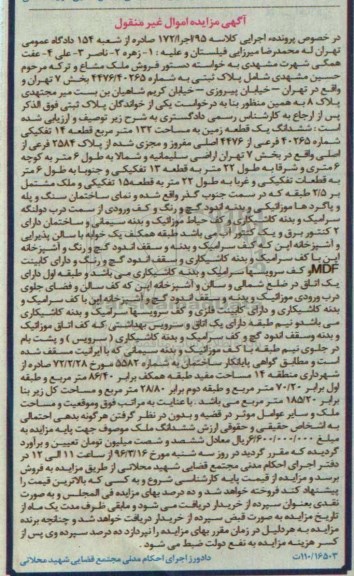 آگهی مزایده اموال غیر منقول
در خصوص پرونده اجرایی کلاسه ۹۵اجرا/۱۷۲ صادره از شعبه ۱۵۴ دادگاه عمومی
تهران له محمدرضا میرزایی فیلستان و علیه : ۱-زهره ۲- ناصر ۳- علی ۴- عفت
همگی شهرت مشهدی به خواسته دستور فروش ملک مشاع و ترکه مرحوم
حسین مشهدی شامل پلاک ثبتی به شماره ۴۴۷۶/۴۰۲۶۵ بخش ۷ تهران و
واقع در تهران – خیابان پیروزی – خیابان کریم شاهیان بن بست میر مجتهدی
پلاک ۸ به همین منظور بنا به درخواست یکی از خواندگان پلاک ثبتی فوق الذکر
پس از ارجاع به کارشناس رسمی دادگستری به شرح زیر توصیف و ارزیابی شده
است : ششدانگ یک قطعه زمین به مساحت ۱۳۲ متر مربع قطعه ۱۴ تفکیکی
شماره ۴۰۲۶۵ فرعی از ۴۴۷۶ اصلی مفروز و مجزی شده از پلاک ۲۵۸۴ فرعی از
اصلی واقع در بخش ۷ تهران اراضی سلیمانیه و شمالا به طول ۶ متر به کوچه
۶ متری و شرقا به طول ۲۲ متر به قطعه ۱۳ تفکیکی و جنوبا به طول ۶ متر
به قطعات تفکیکی و غربا به طول ۲۲ متر به قطعه ۱۵ تفکیکی و ملک مشتمل
بر ۲/۵ طبقه که در سمت جنوب گذر واقع شده و نمای ساختمان سنگ و پله
و پاگردها موزائیک و بدنه اندود گچ و رنگ و کف ورودی از سمت درب دولنگه
سرامیک و بدنه کاشیکاری و کف حیاط موزائیک و بدنه سیمانی و ساختمان دارای
۲ کنتور برق و یک کنتور آب می باشد طبقه همکف یک خوابه با سالن پذیرایی
و آشپزخانه اپن که کف سرامیک و بدنه و سقف اندود گچ و رنگ و آشپزخانه
اپن با کف سرامیک و بدنه کاشیکاری و سقف اندود گچ و رنگ و دارای کابینت
MDF، کف سرویسها سرامیک و بدنه کاشیکاری می باشد و طبقه اول دارای
یک اتاق در ضلع شمالی و سالن و آشپزخانه اپن که کف سالن و فضای جلوی
درب ورودی موزائیک و بدنه و سقف اندود گچ و آشپزخانه اپن با کف سرامیک و
بدنه کاشیکاری و دارای کابینت فلزی و کف سرویسها سرامیک و بدنه کاشیکاری
می باشد و نیم طبقه دارای یک اتاق و سرویس بهداشتی که کف اتاق موزائیک
و بدنه وسقف اندود گچ و کف سرامیک و بدنه کاشیکاری ( سرویس ) و پشت بام
در جلوی نیم طبقه با کف موزائیک و بدنه سیمانی که با ایرانیت مسقف شده
است و مطابق گواهی پایانکار ساختمان به شماره ۵۵۸۲ مورخ ۷۲/۲/۲۸ صادره از
شهرداری منطقه ۱۴ مساحت مفید طبقه همکف برابر ۸۶/۴۰ متر مربع و طبقه
اول برابر ۷۰/۲۰ متر مربع و طبقه دوم برابر ۲۸/۸۰ متر مربع و مساحت کل زیر بنا
برابر ۱۸۵/۲۰ متر مربع می باشد . با عنایت به مراتب فوق وموقعیت و مساحت
ملک و سایر عوامل موثر در قضیه و بدون در نظر گرفتن هرگونه بدهی احتمالی
به اشخاص حقیقی و حقوقی ارزش ششدانگ ملک موصوف جهت پایه مزایده به
مبلغ ۶/۶۰۰/۰۰۰/۰۰۰ ریال معادل ششصد و شصت میلیون تومان تعیین و برآورد
گردیده که مقرر گردید در روز سه شنبه مورخ ۹۶/۳/۱۶ از ساعت ۱۱ الی ۱۲ در
دفتر اجرای احکام مدنی مجتمع قضایی شهید محلاتی از طریق مزایده به فروش
برسد و مزایده از قیمت پایه کارشناسی شروع و به کسی که بالاترین قیمت را
پیشنهاد کند فروخته خواهد شد و ده درصد بهای مزایده فی المجلس و به صورت
نقدی بعنوان سپرده از خریدار دریافت می شود و مابقی ظرف مدت یک ماه از
تاریخ مزایده به صورت قبض سپرده از خریدار دریافت خواهد شد و چنانچه برنده
مزایده به هر دلیل در زمان مقرر بهای مزایده را نپردازد ده درصد سپرده وی پس از
کسر هزینه مزایده به نفع دولت ضبط می شود .
۱۱۰/۱۶۵۰۳ت دادورز اجرای احکام مدنی مجتمع قضایی شهید محلاتی